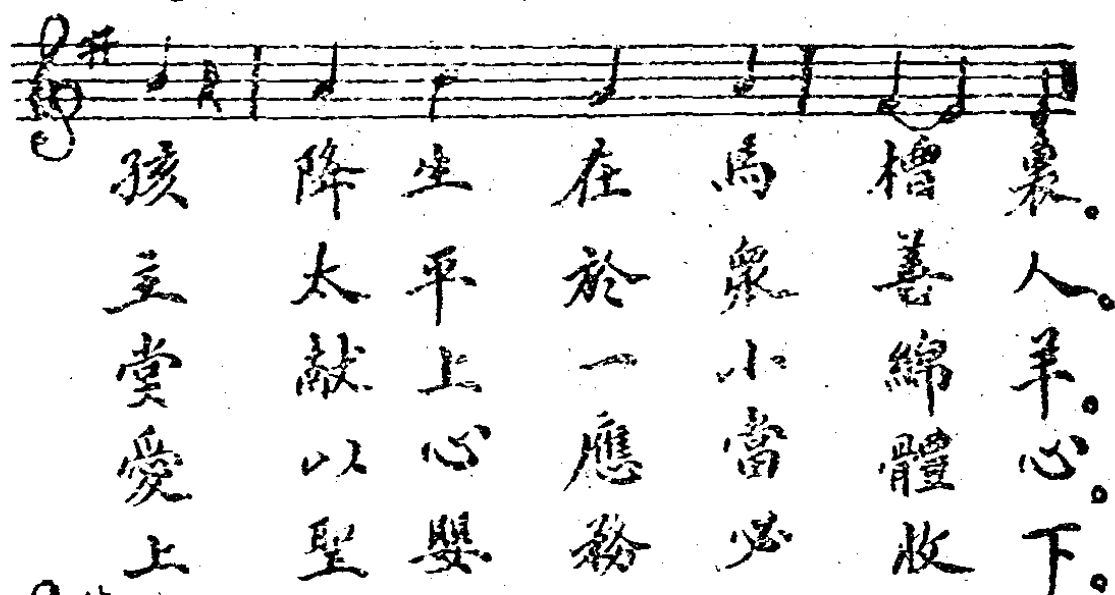 孩降生在馬槽裏。
主太平於眾善人。
堂獻上一小綿羊。
愛以心應當體心。
上聖嬰務必收下。